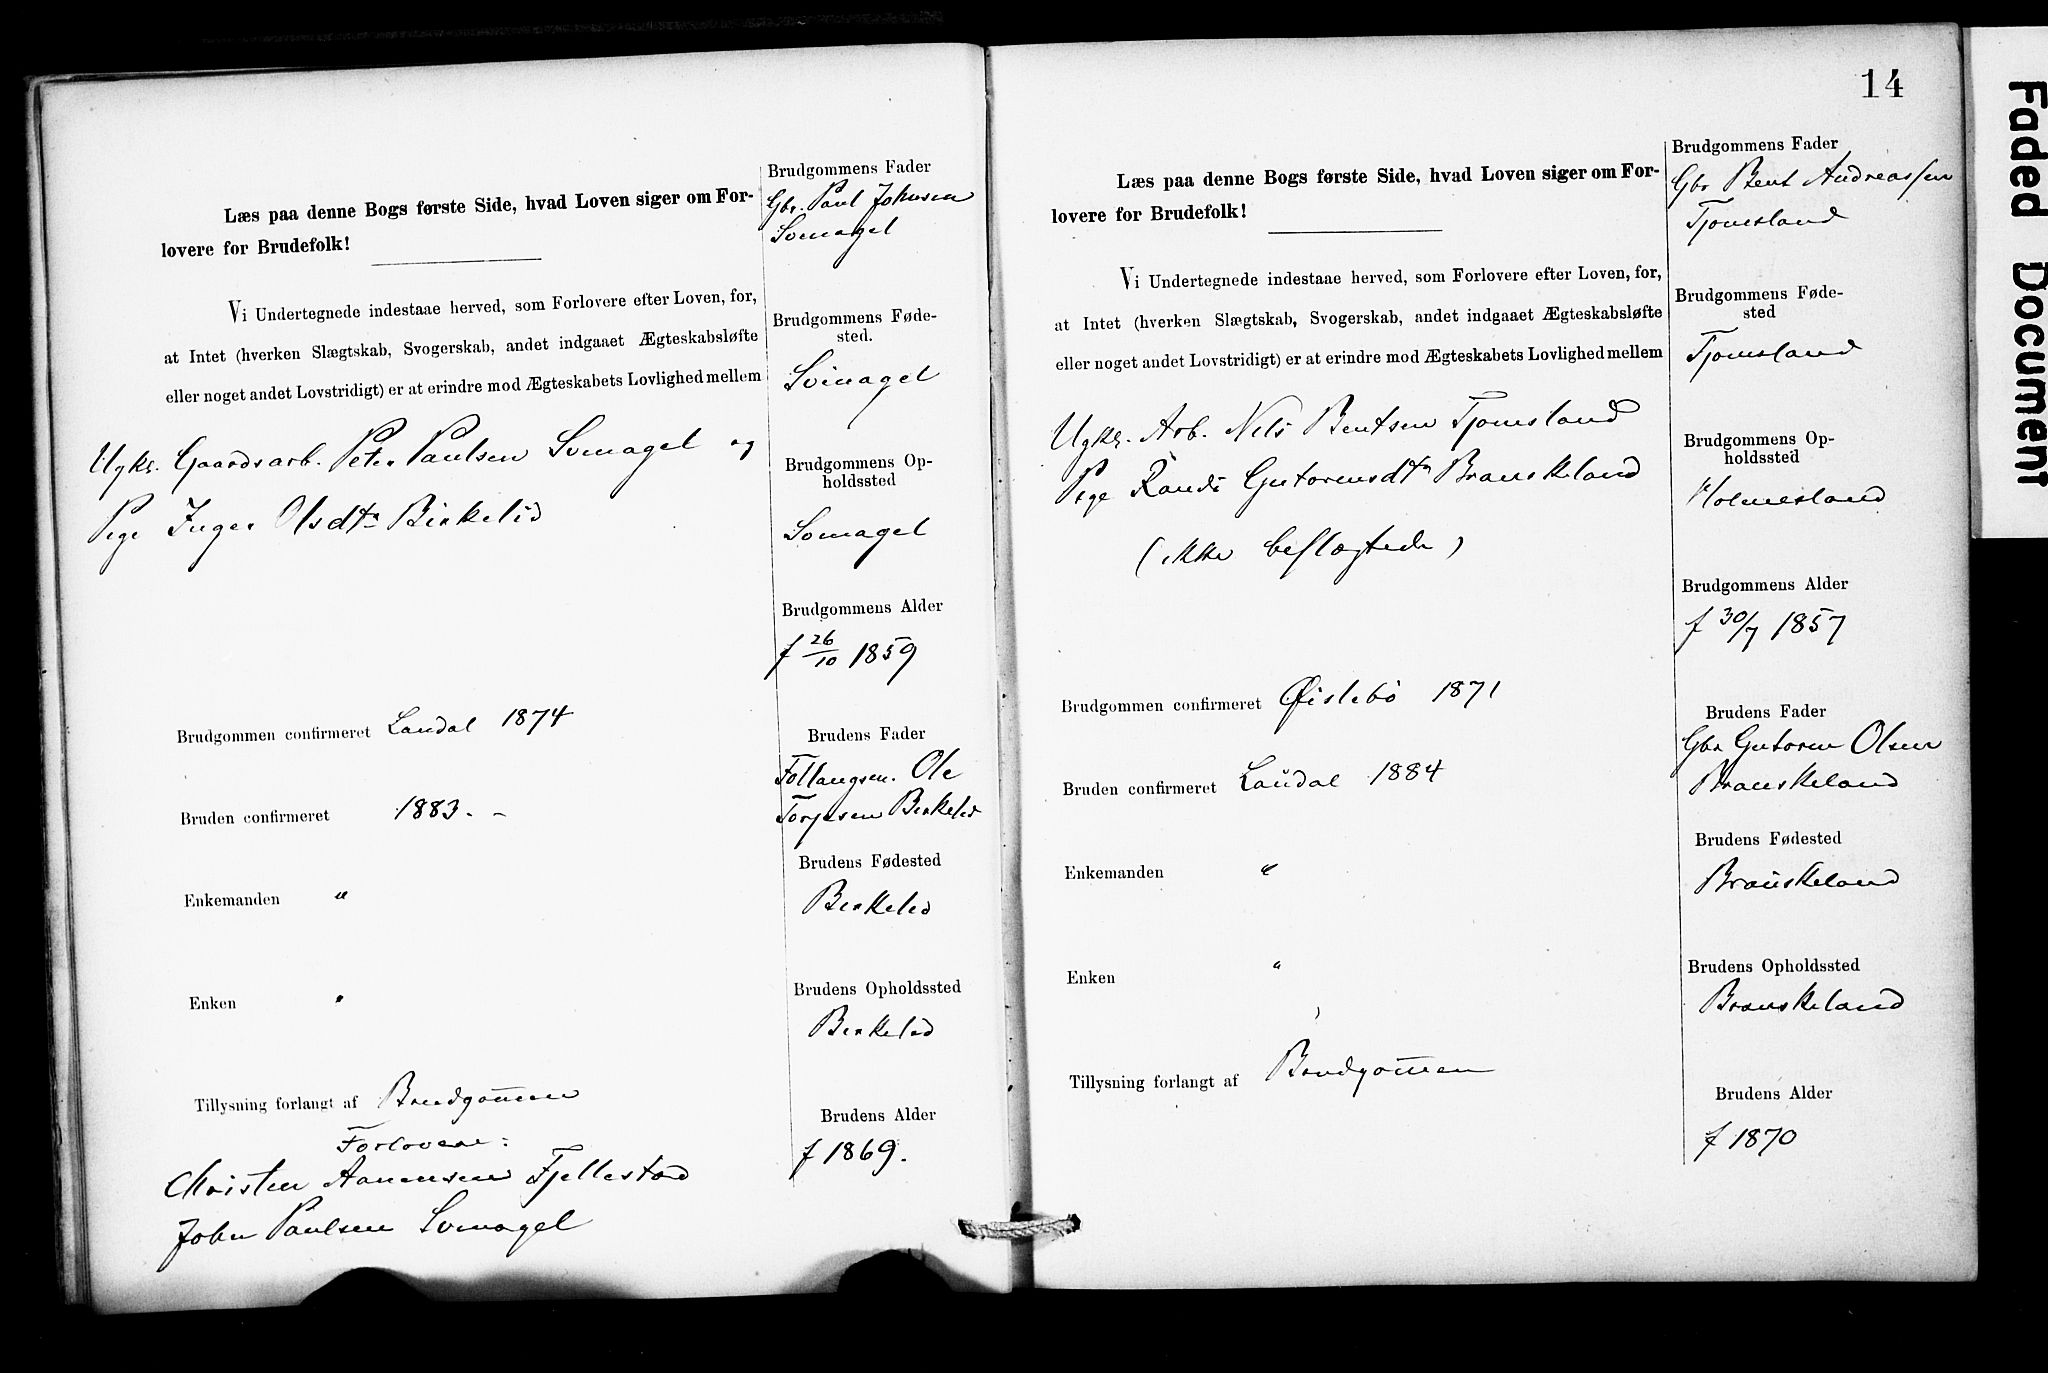 Læs paa denne Bogs første Side, hvad Loven siger om For-
lovere for Brudefolk!
Vi Undertegnede indestaae herved, som Forlovere efter Loven, for,
at Intet (hverken Slægtskab, Svogerskab, andet indgaaet Ægteskabsløfte
eller noget andet Lovstridigt) er at erindre mod Ægteskabets Lovlighed mellem
Ugkr. Gaardsarb. Peter Paulsen Svinagel og
Pige Inger Olsdtr Birkelid
Brudgommen confirmeret Laudal 1874
Bruden confirmeret 1883. -
Enkemanden "
Enken "
Tillysning forlangt af Brudgom̅en
Forlovere:
Christen Aanensen Fjellestad
John Paulsen Svinagel
Brudgommens Fader
Gbr. Paul Johnsen
Svinagel
Brudgommens Føde-
sted.
Svinagel
Brudgommens Op-
holdssted
Svinagel
Brudgommens Alder
f 26/10 1859
Brudens Fader
Follaugsm. Ole
Torjesen Birkelid
Brudens Fødested
Birkelid
Brudens Opholdssted
Birkelid
Brudens Alder
f 1869.
14
Læs paa denne Bogs første Side, hvad Loven siger om For-
lovere for Brudefolk!
Vi Undertegnede indestaae herved, som Forlovere efter Loven, for,
at Intet (hverken Slægtskab, Svogerskab, andet indgaaet Ægteskabsløfte
eller noget andet Lovstridigt) er at erindre mod Ægteskabets Lovlighed mellem
Ugkr. Arb. Nels Bentsen Tjomsland
Pige Randi Gutormsdtr Brauskeland
(ikke beslægtede)
Brudgommen confirmeret Øislebö 1871
Bruden confirmeret Laudal 1884
Enkemanden "
Enken "
Tillysning forlangt af Brudgom̅en
Brudgommens Fader
Gbr Bent Andreassen
Tjomsland
Brudgommens Føde-
sted
Tjomsland
Brudgommens Op-
holdssted
Holmesland
Brudgommens Alder
f 30/7 1857
Brudens Fader
Gbr Gutorm Olsen
Brauskeland
Brudens Fødested
Brauskeland
Brudens Opholdssted
Brauskeland
Brudens Alder
f 1870
Faded Document